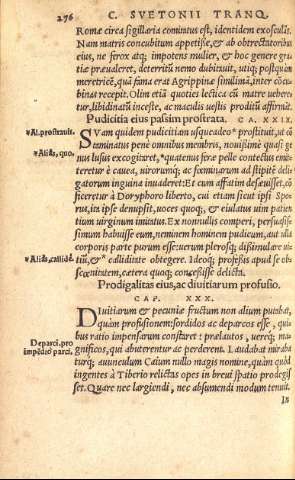 276 C. SVETONII TRANQ.
Romæ circa sigillaria comitatus est, identidem exosculās.
Nam matris concubitum appetisse, & ab obtrectatoribus
eius, ne ferox atq; impotens mulier, & hoc genere gra-
tiæ præualeret, deterritū nemo dubitauit, utiq; postquàm
meretricē, quā fama erat Agrippinæ simillimā, inter cōcu-
binas recepit. Olim etiā quoties lectica cū matre uehere-
tur, libidinatū incestè, ac maculis uestis proditū affirmāt.
Pudicitia eius passim prostrata. CA. XXIX.
*Al. prostrauit.
*Aliâs, quo.
SVam quidem pudicitiam usqueadeo* prostituit, ut cō-
taminatis penè omnibus membris, nouissimè quasi ge-
nus lusus excogitaret, *quatenus feræ pelle contectus emit-
teretur è cauea, uirorumq; ac fœminarum ad stipitē deli-
gatorum inguina inuaderet: Et cum affatim desæuisset, cō-
ficeretur à Doryphoro liberto, cui etiam sicut ipsi Spo-
rus, ita ipse denupsit, uoces quoq; & eiulatus uim patien-
tium uirginum imitatus. Ex nonnullis comperi, persuasis-
simum habuisse eum, neminem hominem pudicum, aut ulla
corporis parte purum esse: uerum plerosq; dissimulare uic-
*Aliâs, callidè.
tiū, &* calliditate obtegere. Ideoq; professis apud se ob-
scœnitatem, cætera quoq; concessisse delicta.
Prodigalitas eius, ac diuitiarum profusio.
CAP. XXX.
DIuitiarum & pecuniæ fructum non alium putabat,
quàm profusionem: sordidos ac deparcos esse, qui-
Deparci, pro
impēdiò parci.
bus ratio impensarum constaret: prælautos, uereq; ma-
gnificos, qui abuterentur ac perderent. Laudabat miraba-
turq; auunculum Caium nullo magis nomine, quàm quòd
ingentes à Tiberio relictas opes in breui spatio prodegis-
set. Quare nec largiendi, nec absumendi modum tenuit.
In